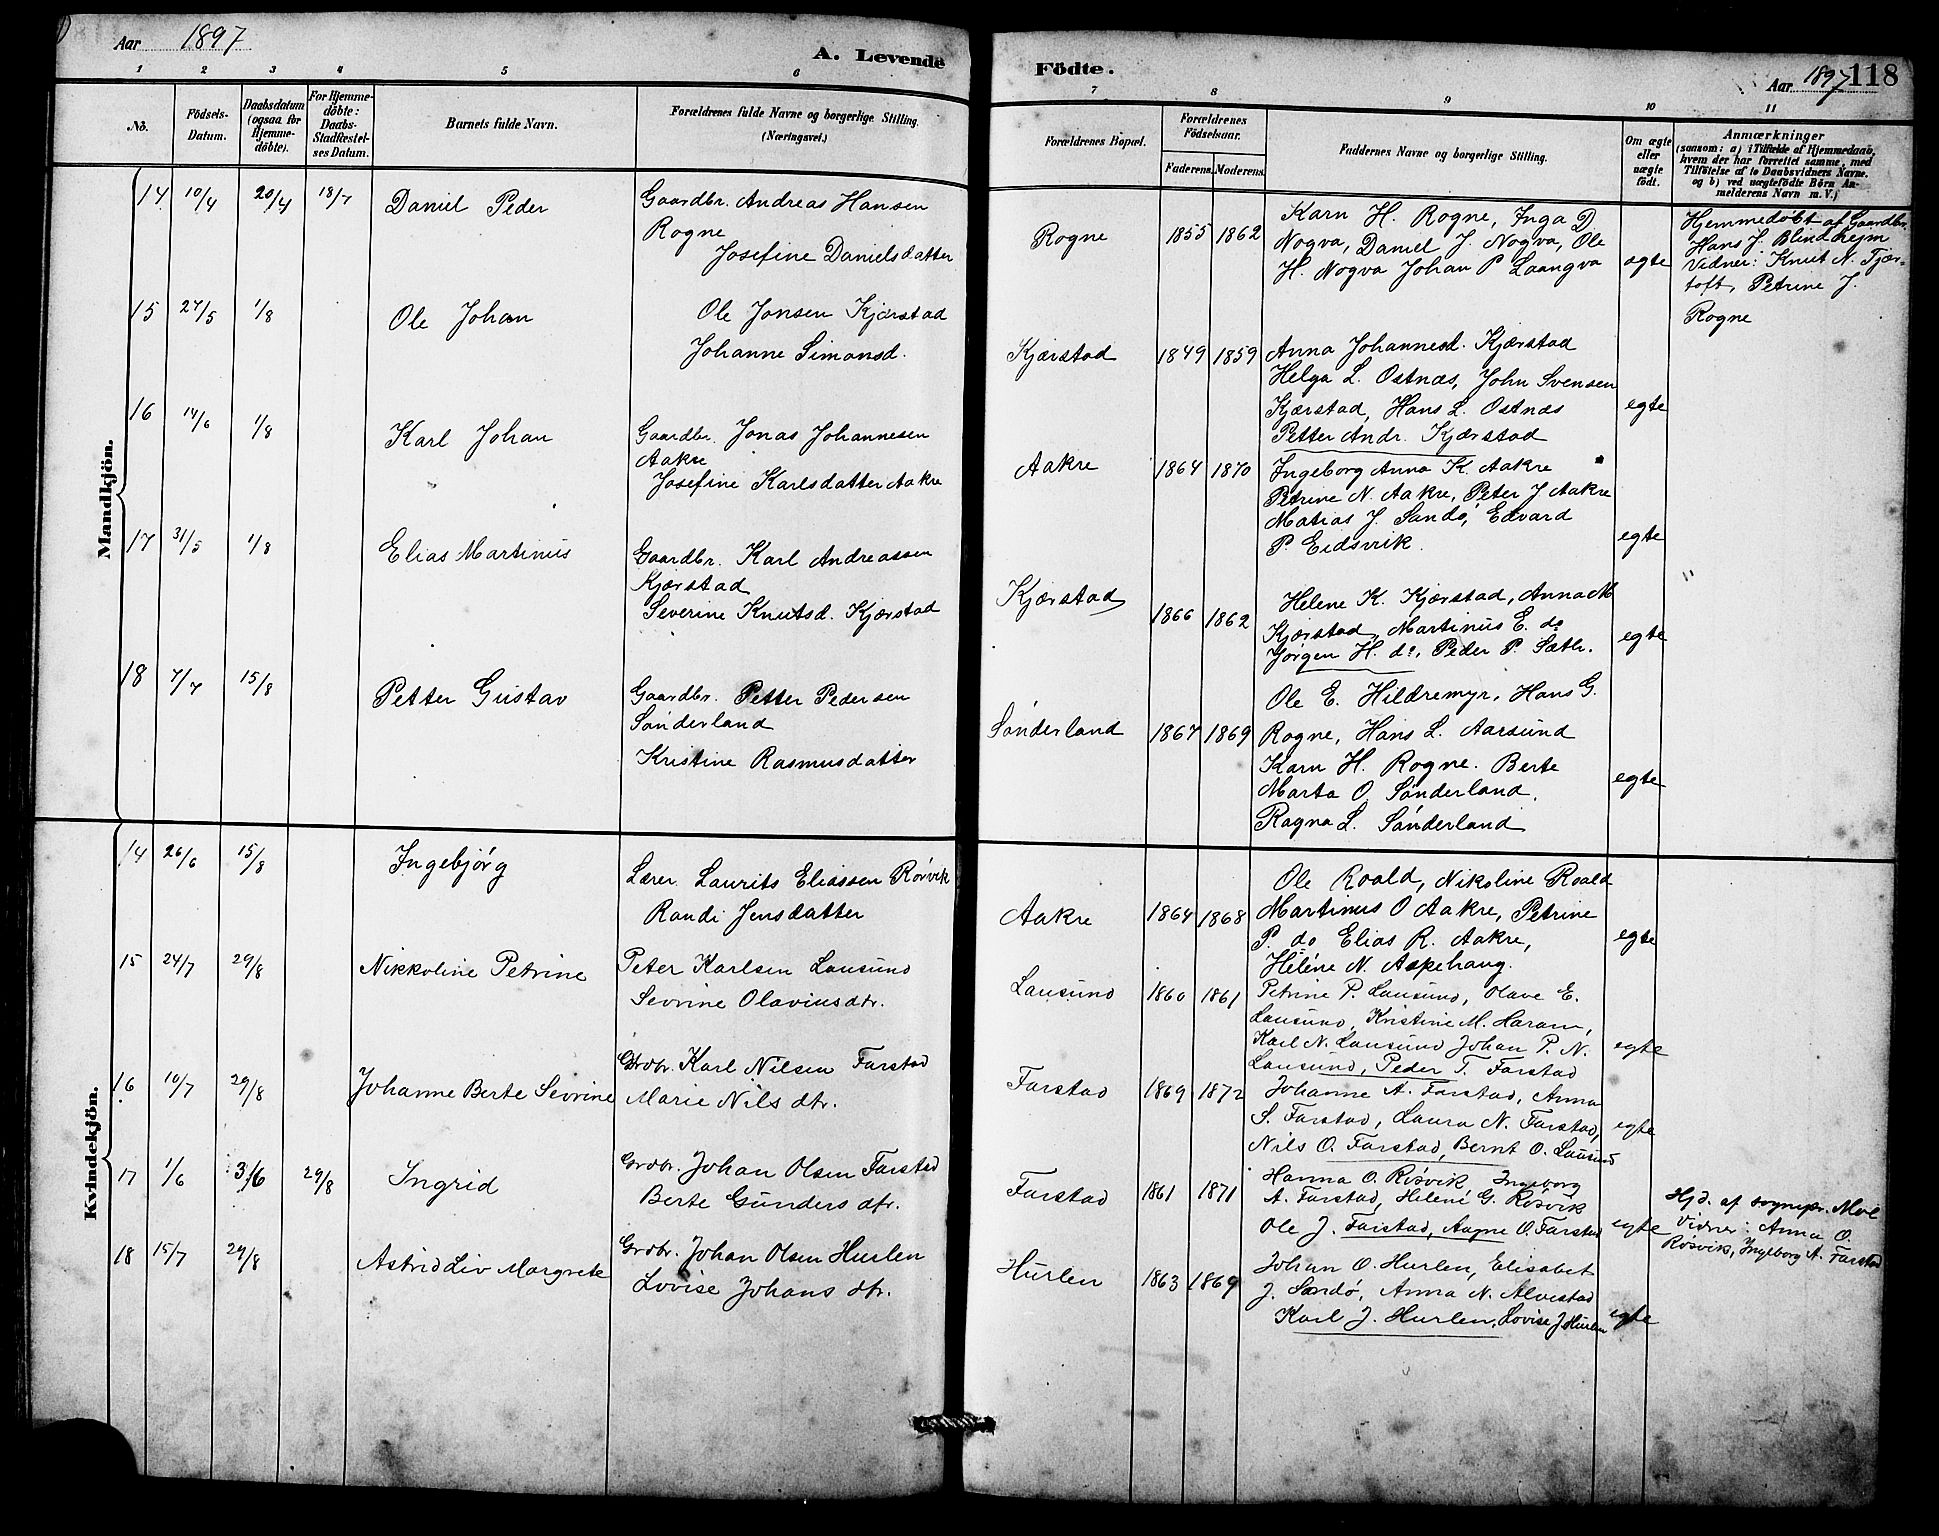 Aar 1897
A. Levende
Födte.
Aar 1897
118
1 2 3 4 5 6
7 8 9 10 11
No.
Födsels-
Datum.
Daabsdatum
(ogsaa for
Hjemme-
döbte).
For Hjemme-
döbte:
Daabs-
Stadfæstel-
ses Datum.
Barnets fulde Navn.
Forældrenes fulde Navne og borgerlige Stilling.
(Næringsvei.)
Forældrenes Bopæl.
Forældrenes
Födselsaar.
Faderens. Moderens.
Faddernes Navne og borgerlige Stilling.
Om ægte
eller
uægte
födt.
Anmærkninger
(saasom: a) i Tilfælde af Hjemmedaab,
hvem der har forrettet samme, med
Tilföielse af to Daabsvidners Navne.
og b) ved uægtefödte Börn An-
melderens Navn m. V.)
Mandkjön.
14 10/4 20/4 18/7 Daniel Peder
Gaardbr. Andreas Hansen
Rogne
Josefine Danielsdatter
Rogne 1855 1862
Karn H. Rogne, Inga D
Nogva, Daniel J. Nogva, Ole
H. Nogva Johan P Laangva
ægte
Hjemmedøbt af Gaardbr.
Hans J. Blindhejm
Vidner: Knut N. Tjær-
toft, Petrine J.
Rogne
15 27/5 1/8 Ole Johan
Ole Jonsen Kjærstad
Johanne Simonsd.
Kjærstad 1849 1859
Anna Johannesd. Kjærstad
Helga L. Ostnæs, John Svensen
Kjærstad, Hans L. Ostnæs
Petter Andr. Kjærstad
egte
16 14/6 1/8 Karl Johan
Gaardbr. Jonas Johannesen
Aakre
Josefine Karlsdatter Aakre
Aakre 1864 1870
Ingeborg Anna K. Aakre
Petrine N. Aakre, Peter J Aakre
Matias J. Sandø, Edvard
P. Eidsvik.
egte
17 31/5 1/8 Elias Martinus
Gaardbr. Karl Andreassen
Kjærstad
Severine Knutsd. Kjærstad
Kjærstad 1866 1862
Helene K. Kjærstad, Anna M
Kjærstad, Martinus E. do
Jørgen H. do, Peder P. Sæth.
egte
18 7/7 15/8 Petter Gustav
Gaardbr. Petter Pedersen
Sønderland
Kristine Rasmusdatter
Sønderland 1867 1869
Ole E. Hildremyr, Hans G.
Rogne, Hans L. Aarsund
Karn H. Rogne. Berte
Marta O Sønderland.
Ragna L. Sønderland
egte
Kvindekjön.
14 26/6 15/8 Ingebjørg
Lærer Laurits Eliassen Rørvik
Randi Jensdatter
Aakre 1864 1868
Ole Roald, Nikoline Roald
Martinus O Aakre, Petrine
P. do Elias R. Aakre,
Heléne N. Aspehaug.
egte
15 24/7 29/8 Nikkoline Petrine
Peter Karlsen Lausund
Sevrine Olaviusdtr.
Lausund 1860 1861
Petrine P. Lausund, Olave E.
Lausund, Kristine M. Haram,
Karl N. Lausund Johan P. N.
Lausund, Peder T. Farstad
egte
16 10/7 29/8 Johanne Berte Sevrine
Grdbr. Karl Nilsen Farstad
Marie Nils dtr.
Farstad 1869 1872
Johanne A. Farstad, Anna
S. Farstad, Laura N. Farstad,
Nils O. Farstad, Bernt O. Lausund
egte
17 1/6 3/6 29/8 Ingrid
Grdbr. Johan Olsen Farstad
Berte Gunders dtr.
Farstad 1861 1871
Hanna O. Røsvik, Ingeborg
A. Farstad, Helené G. Røsvik
Ole J. Farstad, Aagne O. Farstad
egte
Hjd. af sognepr. Moe
Vidner: Anna O.
Røsvik, Ingeborg A. Farstad
18 15/7 29/8 Astrid Liv Margrete
Grdbr. Johan Olsen Hurlen
Lovise Johans dtr.
Hurlen 1863 1869
Johan O. Hurlen, Elisabet
J. Sandø, Anna N. Alvestad
Karl J. Hurlen, Lovise J Hurlen
egte